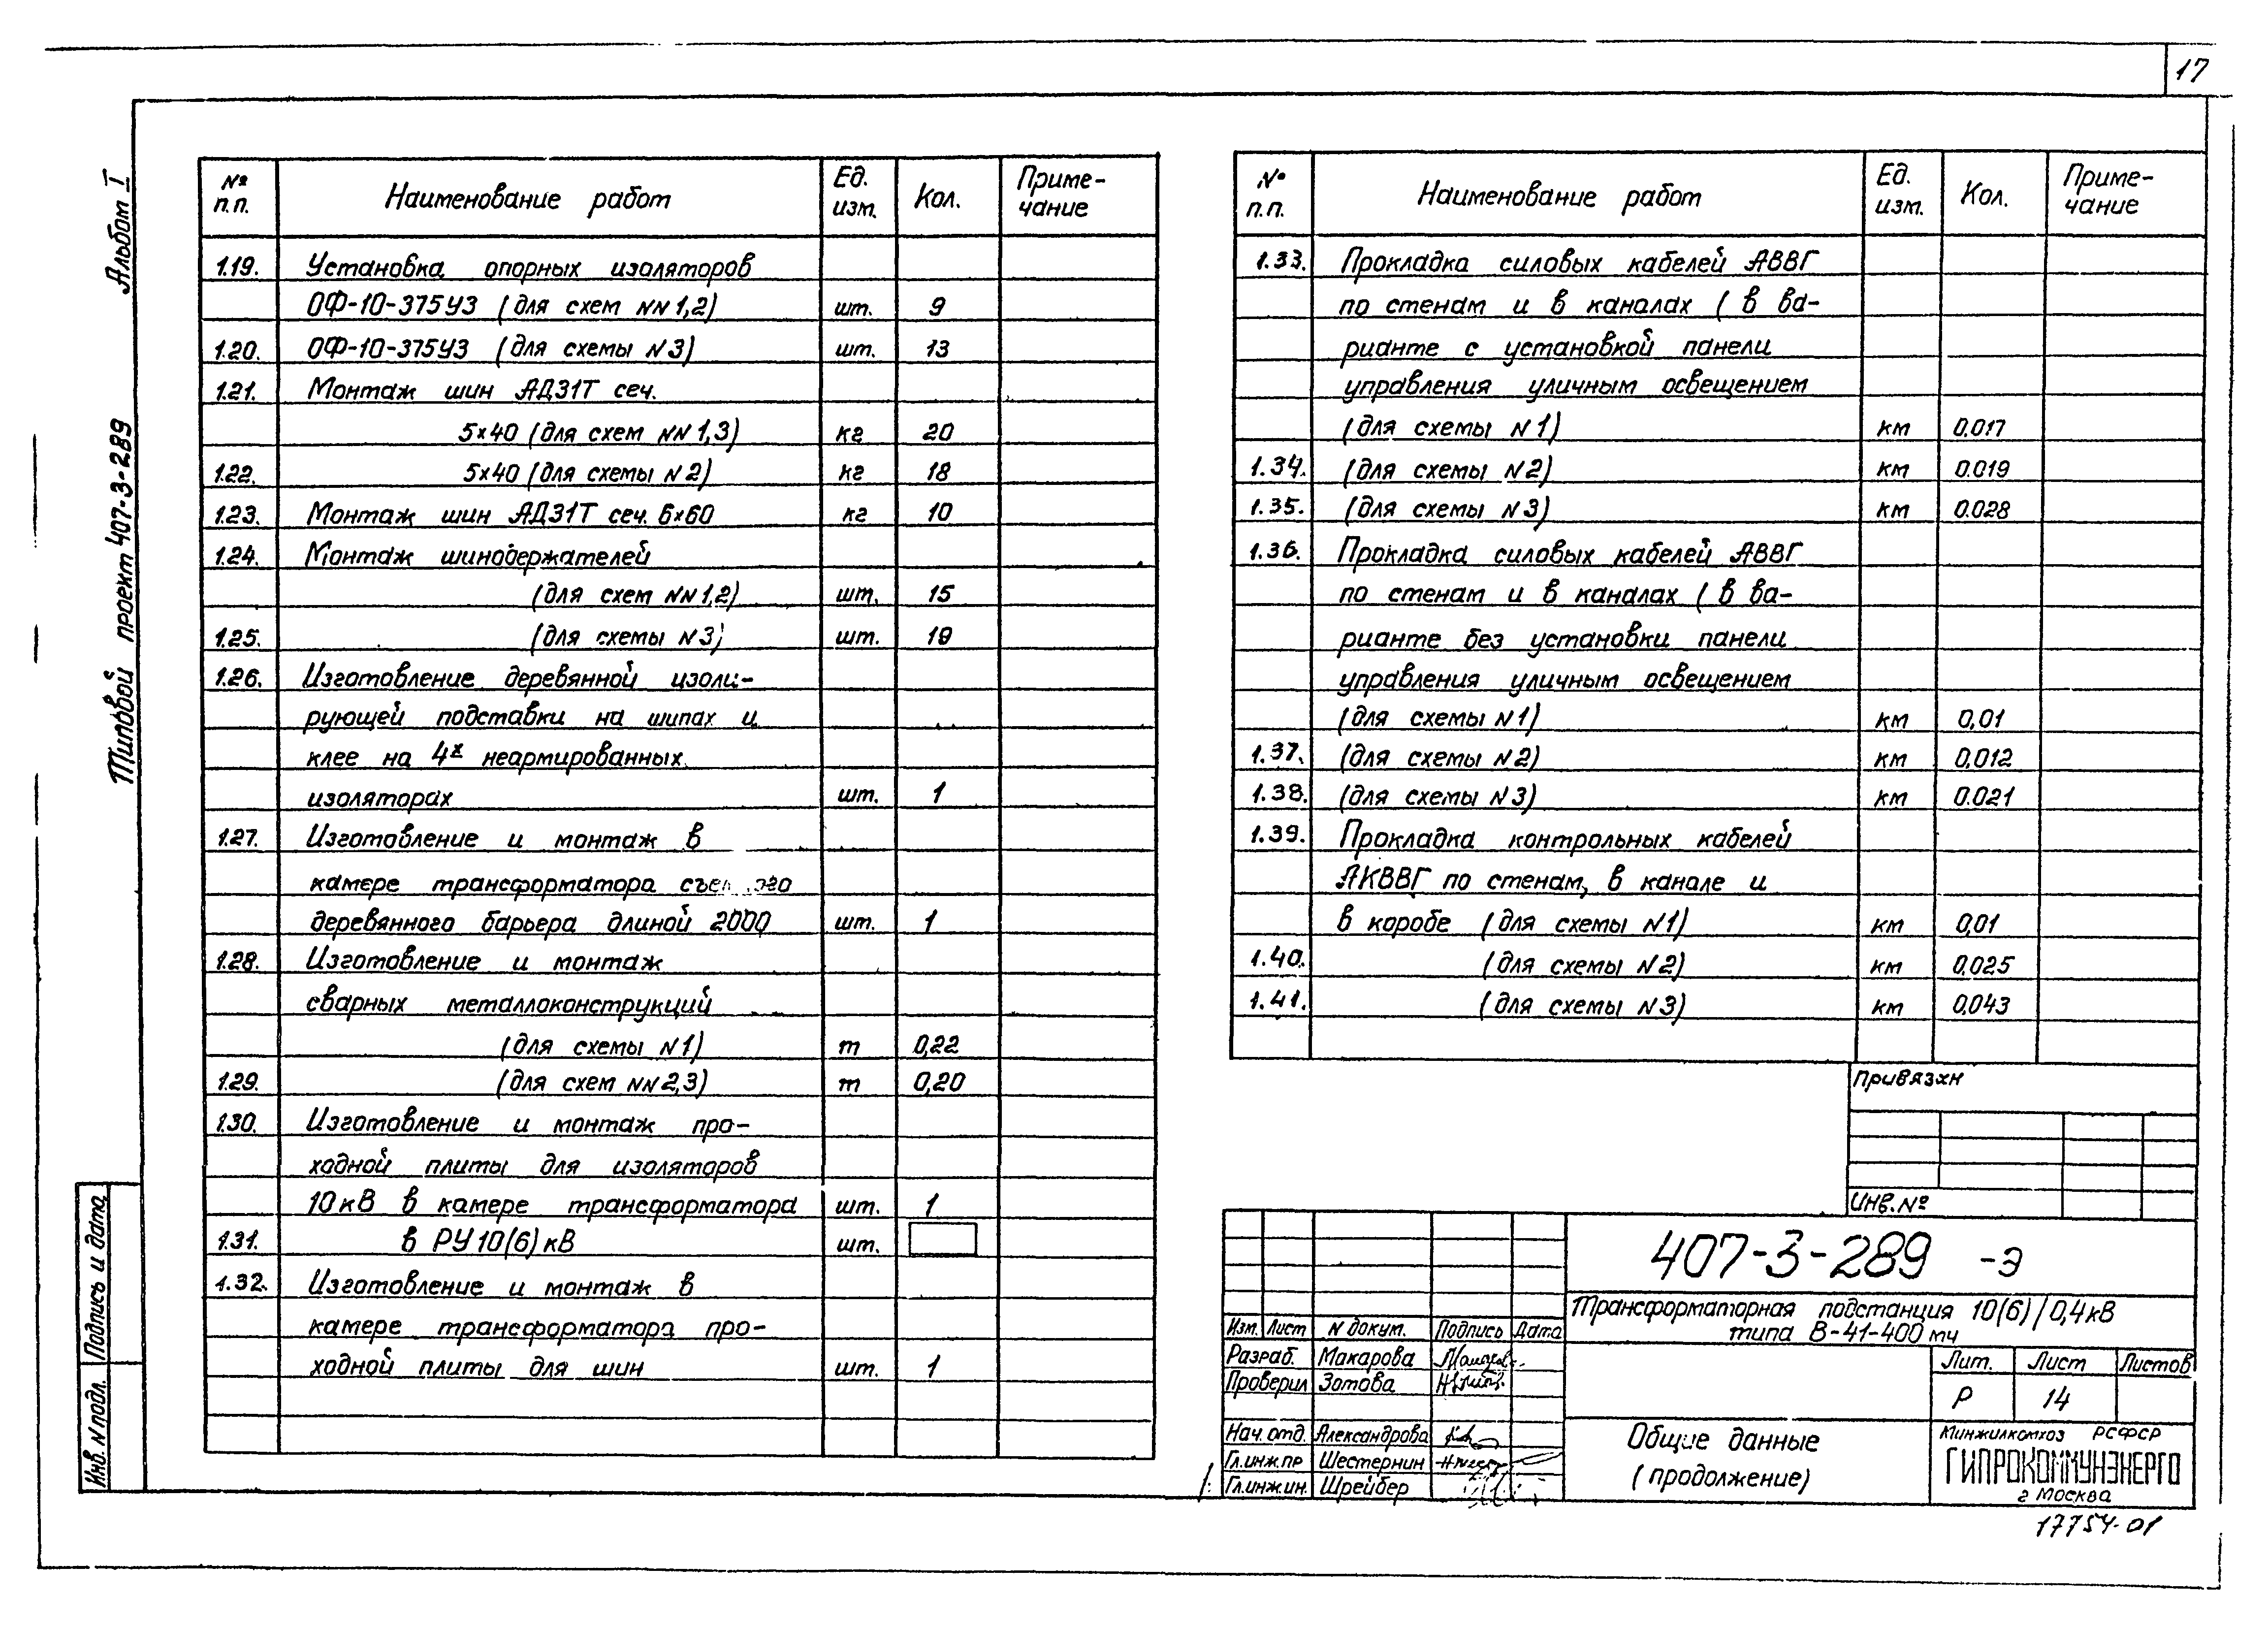 17
Альбом I
Типовой проект 407-3-289
Подпись и дата
Инв. N подл.
№ п.п. Наименование работ Ед. изм. Кол. Приме- чание
1.19. Установка опорных изоляторов
ОФ-10-375У3 (для схем NN 1,2) шт. 9
1.20. ОФ-10-375У3 (для схемы N3) шт. 13
1.21. Монтаж шин АД31Т сеч.
5х40 (для схем NN 1,3) кг 20
1.22. 5х40 (для схемы N2) кг 18
1.23. Монтаж шин АД31Т сеч. 6х60 кг 10
1.24. Монтаж шинодержателей
(для схем NN 1,2) шт. 15
1.25. (для схемы N3) шт. 19
1.26. Изготовление деревянной изоли-
рующей подставки на шипах и
клее на 4х неармированных
изоляторах шт. 1
1.27. Изготовление и монтаж в
камере трансформатора
деревянного барьера длиной 2000 шт. 1
1.28. Изготовление и монтаж
сварных металлоконструкций
(для схемы N1) т 0,22
1.29. (для схем NN 2,3) т 0,20
1.30. Изготовление и монтаж про-
ходной плиты для изоляторов
10кВ в камере трансформатора шт. 1
1.31. в РУ 10(6) кВ шт.
1.32. Изготовление и монтаж в
камере трансформатора про-
ходной плиты для шин шт. 1
№ п.п. Наименование работ Ед. изм. Кол. Приме- чание
1.33. Прокладка силовых кабелей АВВГ
по стенам и в каналах (в ва-
рианте с установкой панели
управления уличным освещением
(для схемы N1) км 0.017
1.34. (для схемы N2) км 0.019
1.35. (для схемы N3) км 0.028
1.36. Прокладка силовых кабелей АВВГ
по стенам и в каналах (в ва-
рианте без установки панели
управления уличным освещением
(для схемы N1) км 0,01
1.37. (для схемы N2) км 0,012
1.38. (для схемы N3) км 0.021
1.39. Прокладка контрольных кабелей
АКВВГ по стенам, в канале и
в коробе (для схемы N1) км 0,01
1.40. (для схемы N2) км 0,025
1.41. (для схемы N3) км 0,043
Привязхн
Инв. №
407-3-289 -Э
Трансформаторная подстанция 10(6)/0,4кВ
типа В-41-400 мч
Изм. Лист N докум. Подпись Дата
Разраб. Макарова
Проверил Зотова
Нач. отд. Александрова
Гл. инж. пр Шестернин
Гл. инж. ин. Шрейбер
Лит. Лист Листов
Р 14
Общие данные
(продолжение)
Минжилкомхоз РСФСР
ГИПРОКОММУНЭНЕРГО
г Москва
17754-01